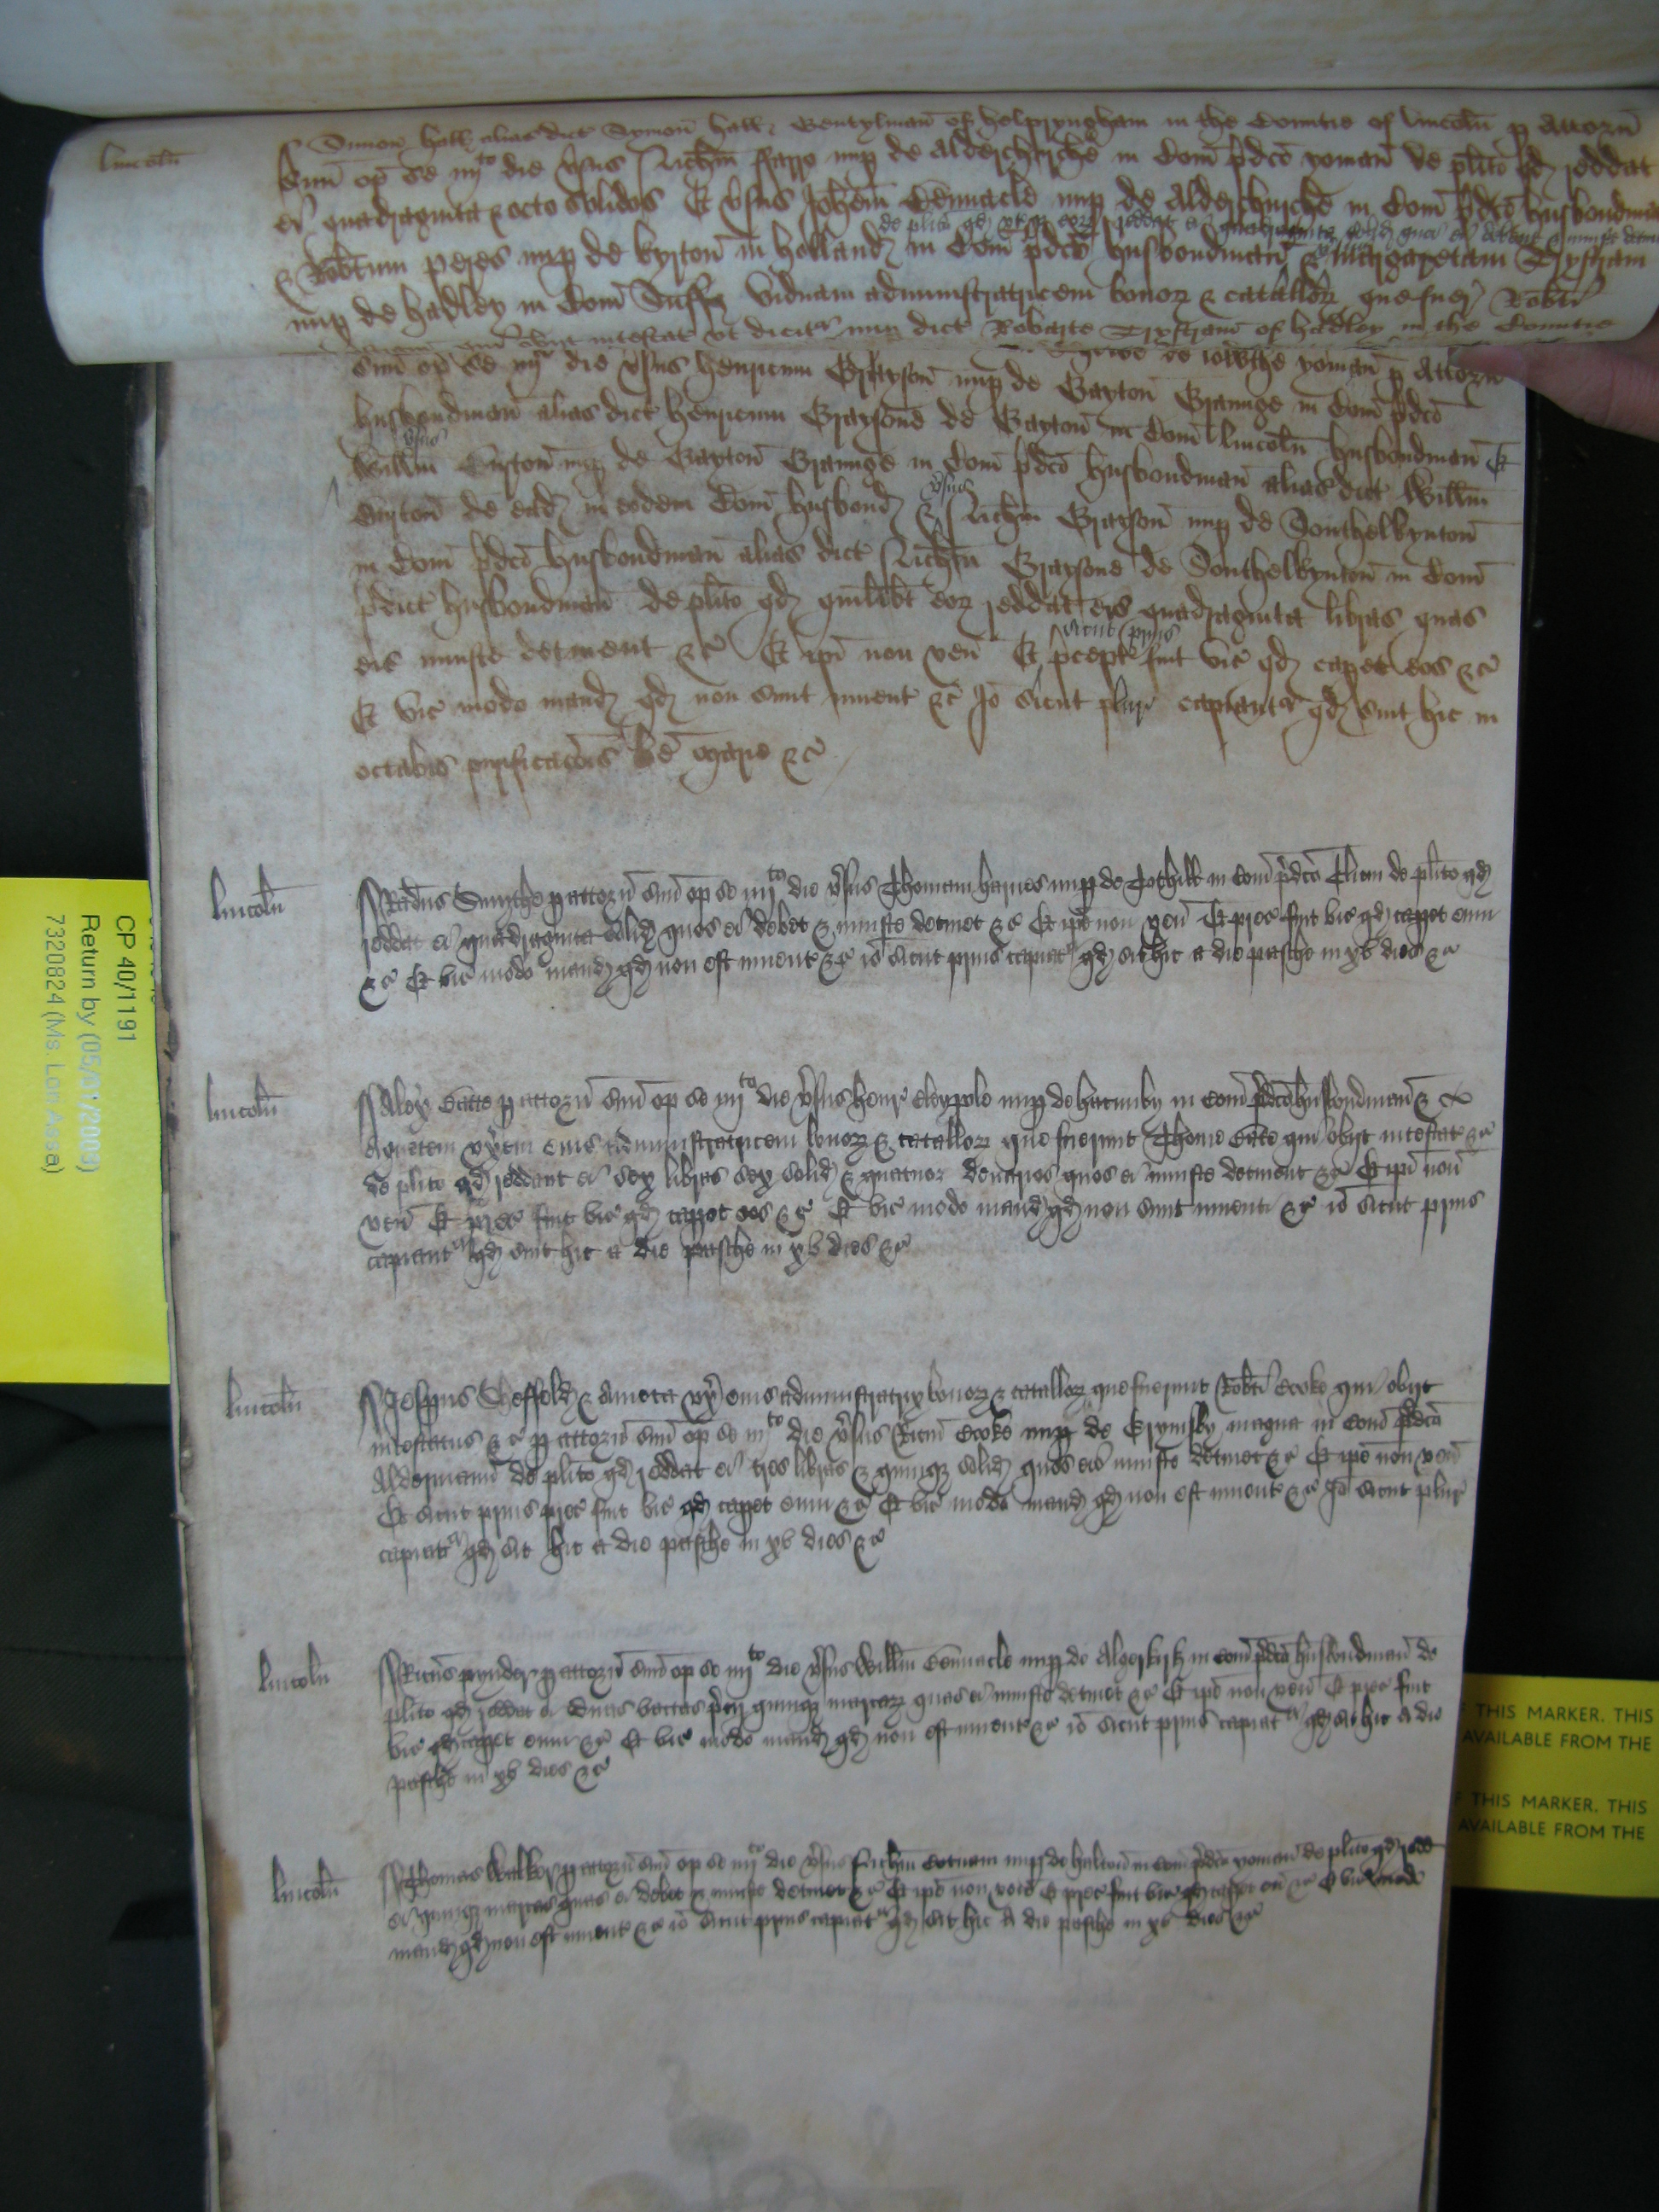 lincoln̄
Simon hall alias dict Symon hall Gentylman of helpryngham in the Countie of lincoln̄ p Attorn̄
Sūū op se iiijto die v̄sus Nich̄m ffarre nup de Alderchirche in Com̄ p̄dc̄o yoman de plito qd reddat
ei quadraginta & octo solidos Et v̄sus Joh̄em Cennacle nup de Alderchurche in Com̄ p̄dc̄o husbondman
de plito qd reddat ei quadraginta solid quos ei debent & iniuste detin
& Rob̄tum peres nup de kyrton in holland in Com̄ p̄dc̄o husbondman & Margaretam Trystram
nup de hadley in Com̄ Suff viduam administratricem bonor & catallor que fuer Rob̄ti
obijt intestat vt dicitr nup dict Robarte Trystram of hadley in the Countie
de lowthe yoman p Attorn̄
Sūū op se iiijto die v̄sus henricum Grayson nup de Gayton Graunge in Com̄ p̄dc̄o
husbondman alias dict henricum Graysone de Gayton in Com̄ lincoln̄ husbondman Et
v̄sus
Will̄m nup de Gayton Graunge in Com̄ p̄dc̄o husbondman alias dict Will̄m
de ead in eodem Com̄ husbond & v̄sus Nich̄m Grayson nup de Southelkynton
in Com̄ p̄dc̄o husbondman alias dict Nich̄m Graysone de Southelkynton in Com̄
p̄dict husbondman de plito qd quilib̄t eor reddat eis quadraginta libras quas
eis iniuste detinent &c̄ Et ip̄i non ven̄ Et sicut prius
p̄cept fuit vic̄ qd capet eos &c̄
Et vic̄ modo mand qd non sunt inuent &c̄ Jō sicut plur capiantr qd sint hic in
octabis purificac̄ois bē marie &c̄
lincoln̄
Rad̄us Smythe p attorn̄ sūū op se iiijto die v̄sus Thomam harnes nup de Tothill in com̄ p̄dc̄o Clicum de plito qd
reddat ei quadraginta solid quos ei debet & iniuste detinet &c̄ Et ip̄e non ven̄ Et prec̄ fuit vic̄ qd capet eum
&c̄ Et vic̄ modo mand qd non est inuent &c̄ iō sicut prius capiatr qd sit hic a die pasche in xv dies &c̄
lincoln̄
Alex p attorn̄ sūū op se iiijto die v̄sus henr Cleypole nup de harmby in com̄ p̄dc̄o husbondman &
Agnetem vx̄em eius administratricem bonor & catallor que fuerunt Thome qui obijt intestat &c̄
de plito qd reddant ei sex libras sex solid & quatuor denarios quos ei iniuste detinent &c̄ Et ip̄i non
ven̄ Et prec̄ fuit vic̄ qd capet eos &c̄ Et vic̄ modo mand qd non sunt inuenti &c̄ iō sicut prius
capiantr qd sint hic a die pasche in xv dies &c̄
lincoln̄
Joh̄es Seffold & Amota vx̄ eius administratrix bonor & catallor que fuerunt Rob̄ti Cooke qui obijt
intestatus &c̄ p attorn̄ sūū op se iiijto die v̄sus Ric̄m Cooke nup de Grymsby magna in com̄ p̄dc̄o
Aldermann̄ de plito qd reddat ei tres libras & quinq solid quos eis iniuste detinet &c̄ Et ip̄e non ven̄
Et sicut prius prec̄ fuit vic̄ qd capet eum &c̄ Et vic̄ modo mand qd non est inuent &c̄ Jō sicut plur
capiatr qd sit hic a die pasche in xv dies &c̄
lincoln̄
Ric̄us pynder p attorn̄ sūū op se iiijto die v̄sus Will̄m Cennacle nup de Algerkirk in com̄ p̄dc̄o husbondman de
plito qd reddat ei duas vaccas p̄cij quinq marcar quas ei iniuste detinet &c̄ Et ip̄e non ven̄ Et prec̄ fuit
vic̄ qd capet eum &c̄ Et vic̄ modo mand qd non est inuent &c̄ iō sicut prius capiatr qd sit hic A die
pasche in xv dies &c̄
lincoln̄
Thomas Walker p attorn̄ sūū op se iiijto die v̄sus Nich̄m nup de in com̄ p̄dc̄o yoman de plito qd redd
ei quinq marcas quas ei debet & iniuste detinet &c̄ Et ip̄e non ven̄ Et prec̄ fuit vic̄ qd capet eū &c̄ Et vic̄ modo
mand qd non est inuent &c̄ iō sicut prius capiatr qd sit hic A die pasche in xv dies &c̄
CP 40/1191
Return by (05/01/2008)
7320824 (Ms. Lori Assa)
F THIS MARKER. THIS
AVAILABLE FROM THE
F THIS MARKER. THIS
AVAILABLE FROM THE